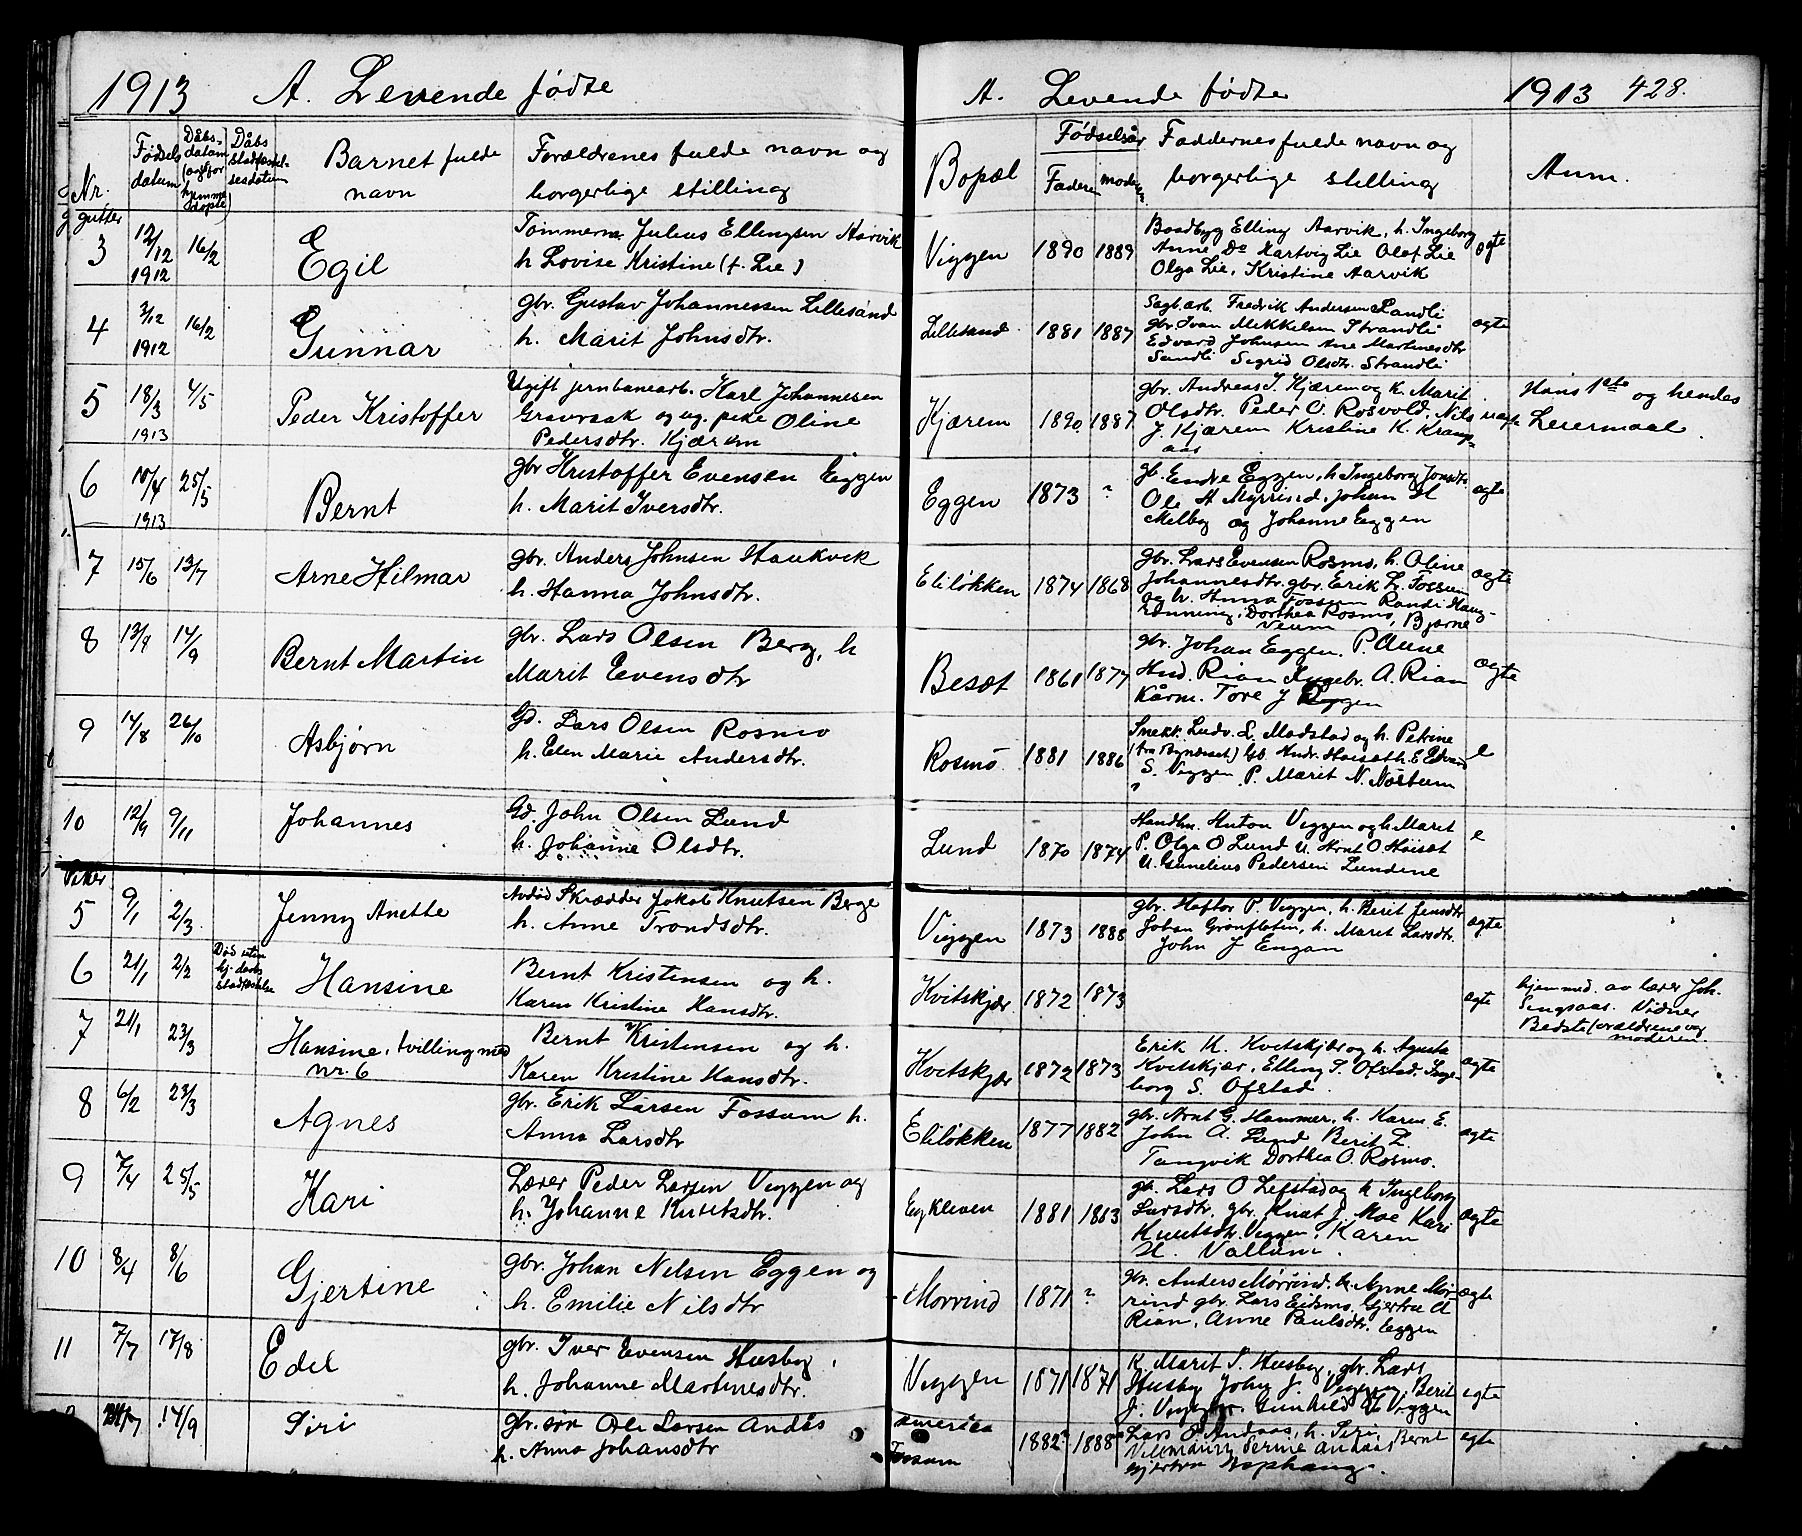 1913 A. Levende fødte
Nr.
Fødsels datum
Dåbs- datum (også for hjemme døpte)
Dåbs stadfæstel- sesdatum
Barnet fulde navn
Forældrenes fulde navn og borgerlige stilling
gutter
3 12/12 1912 16/2 Egil
Tømmerm. Julius Ellingsen Aarvik
h Lovise Kristine (f. Lie)
4 3/12 1912 16/2 Gunnar
gbr. Gustav Johannessen Lillesand
h. Marit Johnsdtr.
5 18/3 1913 4/5 Peder Kristoffer
Ugift jernbanearb. Karl Johannesen
Gravraak og ug. pike Oline
Pedersdtr. Kjærem
6 10/4 1913 25/5 Bernt
gbr Kristoffer Evensen Eggen
h. Marit Iversdtr.
7 15/6 13/7 Arne Hilmar
gbr. Anders Johnsen Haukvik
h. Hanna Johnsdtr.
8 13/9 14/9 Bernt Martin
gbr. Lars Olsen Berg, h
Marit Evensdtr
9 14/8 26/10 Asbjørn
Gd. Lars Olsen Rosmo
h. Elen Marie Andersdtr.
10 12/9 9/11 Johannes
Gd. John Olsen Lund
h. Johanne Olsdtr.
Piker
5 9/1 2/3 Jenny Anette
Avdød Skrædder Jakob Knutsen Berge
h. Anne Trondsdtr.
6 21/1 2/2 Død uten kj. daabs stadfæstelse Hansine
Bernt Kristensen og h.
Karen Kristine Hansdtr.
7 21/1 23/3 Hansine, tvilling med nr. 6
Bernt Kristensen og h.
Karen Kristine Hansdtr.
8 6/2 23/3 Agnes
gbr. Erik Larsen Fossum h.
Anna Larsdtr
9 7/4 25/5 Kari
Lærer Peder Larsen Viggen og
h. Johanne Knutsdtr.
10 8/4 8/6 Gjertine
gbr. Johan Nilsen Eggen og
h. Emilie Nilsdtr
11 7/7 17/8 Edel
gbr. Iver Evensen Husby,
h. Johanne Martinesdtr.
14/9 Siri
gbr. søn Ole Larsen Andås
h. Anna Johansdtr
A. Levende fødte 1913 428.
Bopæl
Fødselsår
Faderen moderen
Faddernes fulde navn og borgerlige stilling
Anm.
Viggen 1890 1889
Baadbyg Elling Aarvik, h. Ingeborg
Anne Do Hartvig Lie Olaf Lie
Olga Lie, Kristine Aarvik
ægte
Lillesand 1881 1887
Sagb. arb. Fredrik Andersen Sandli
gbr. Ivan Mikkelsen Strandli
Edvard Johnsen Ane Martinesdtr
Sandli Sigrid Olsdtr. Strandli
ægte
Kjærem 1890 1887
gbr. Andreas J. Kjærem og k. Marit
Olsdtr. Peder O. Rosvold, Nils
J. Kjærem Kristine K. Kraag-
aas
uægte
Hans 1ste og hendes
Leiermaal.
Eggen 1873 ?
gb. Endre Eggen, h Ingeborg Jonsdtr
Ole H Myrrind, Johan H
Melby og Johanne Eggen
ægte
Eliløkken 1874 1868
gbr. Lars Evensen Rosmo, h. Oline
Johannesdtr. gbr. Erik L. Fossum
og h. Anna Fossum Randi Haug-
rønning, Dorthea Rosmo, Bjarne
Veum
ægte
Besøt 1861 1877
gbr. Johan Eggen. P. Anne
Hnd. Rian Ingebr. A. Rian
Kårm. Tore J Eggen
ægte
Rosmo 1881 1886
Snekk. Ludv. L. Madstad og h. Petrine
(fra Bynesset) Gb. Andr. Hoiseth. E Edvard
S. Viggen P. Marit N. Norbum
e
Lund 1870 1874
Handlm. Anton Viggen og h Marit
P. Olga O Lund U. Arnt O Hoiset
U. Gunelius Pedersen Lundene
e
Viggen 1873 1888
gbr. Haftor P. Viggen, h. Berit Jensdtr
Johan Grønfloten, h. Marit Larsdtr.
John J Engan
ægte
Kvitskjær 1872 1873
ægte
hjemmed. av lærer Joh.
Singsaas. Vidner
Bedsteforældrene og
moderen.
Kvitskjær 1872 1873
Erik H. Kvitskjær og h. Agusta
Kvitskjær, Elling S. Ofstad, Inge-
borg S. Ofstad
ægte
Eliløkken 1877 1882
gbr. Arnt G. Hammer, h. Karen E.
John A. Lund Berit L.
Tangvik Dorthea O. Rosmo.
ægte
Engkleiven 1881 1883
gb. Lars O Lefstad og h Ingeborg
Larsdtr. gbr. Knut J. Moe Kari
Knutsdtr. Viggen, Karen
H. Vollum.
ægte
Morrind 1871 ?
gbr. Anders Mørrind. h. Anne Mør-
rind gbr. Lars Eidsmo. Gjertru A
Rian, Anne Paulsdtr. Eggen
ægte
Viggen 1871 1871
K Marit S. Husby, gbr. Lars
Husby John J. Viggen, Berit
J. Viggen. Gunhild V. Viggen
egte
Amerika
Fossum 1882 1888
Lars O Andaas, h. Siri, Bernt
Andaas
egte